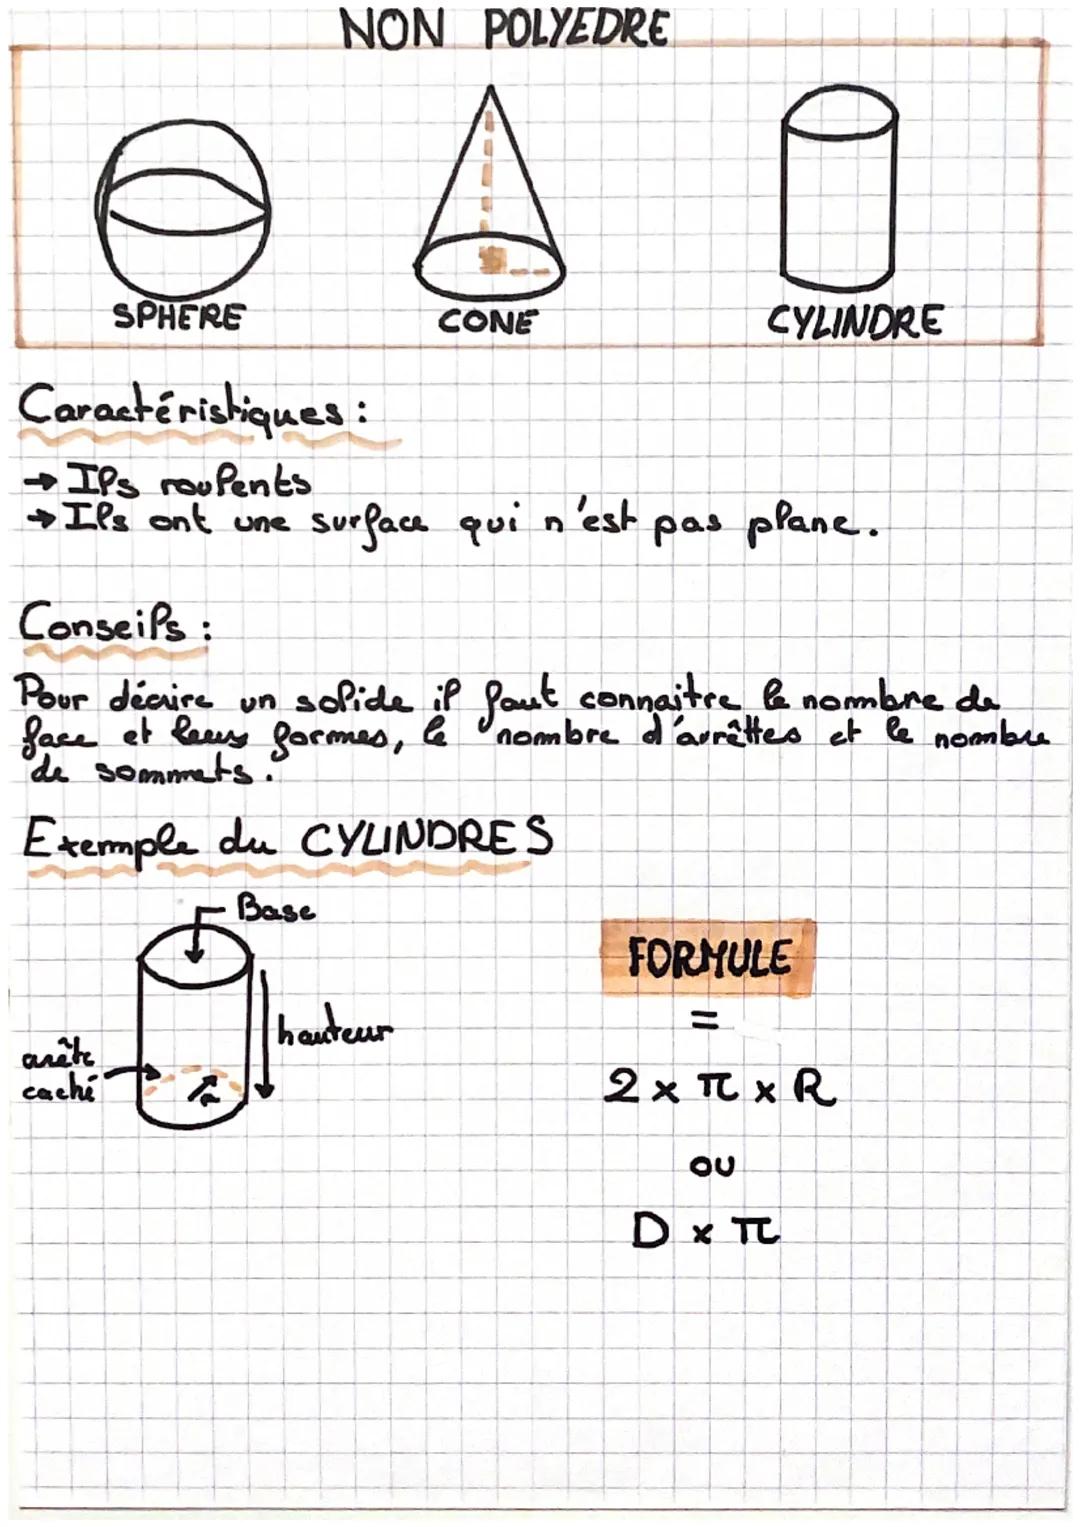 NON POLYEDRE
SPHERE
CONE
CYLINDRE
Caractéristiques :
→ Ils roulents
→ Ils ont une surface qui n'est pas plane.
Conseils :
Pour décrire un solide il faut connaitre le nommbre de
face et leurs formes, le nombre d'arrêttes et le nombre
de sommets.
Exemple du CYLINDRES
Base
hauteur
arête
caché
r
FORMULE
=
2 x π x R
ou
D x π